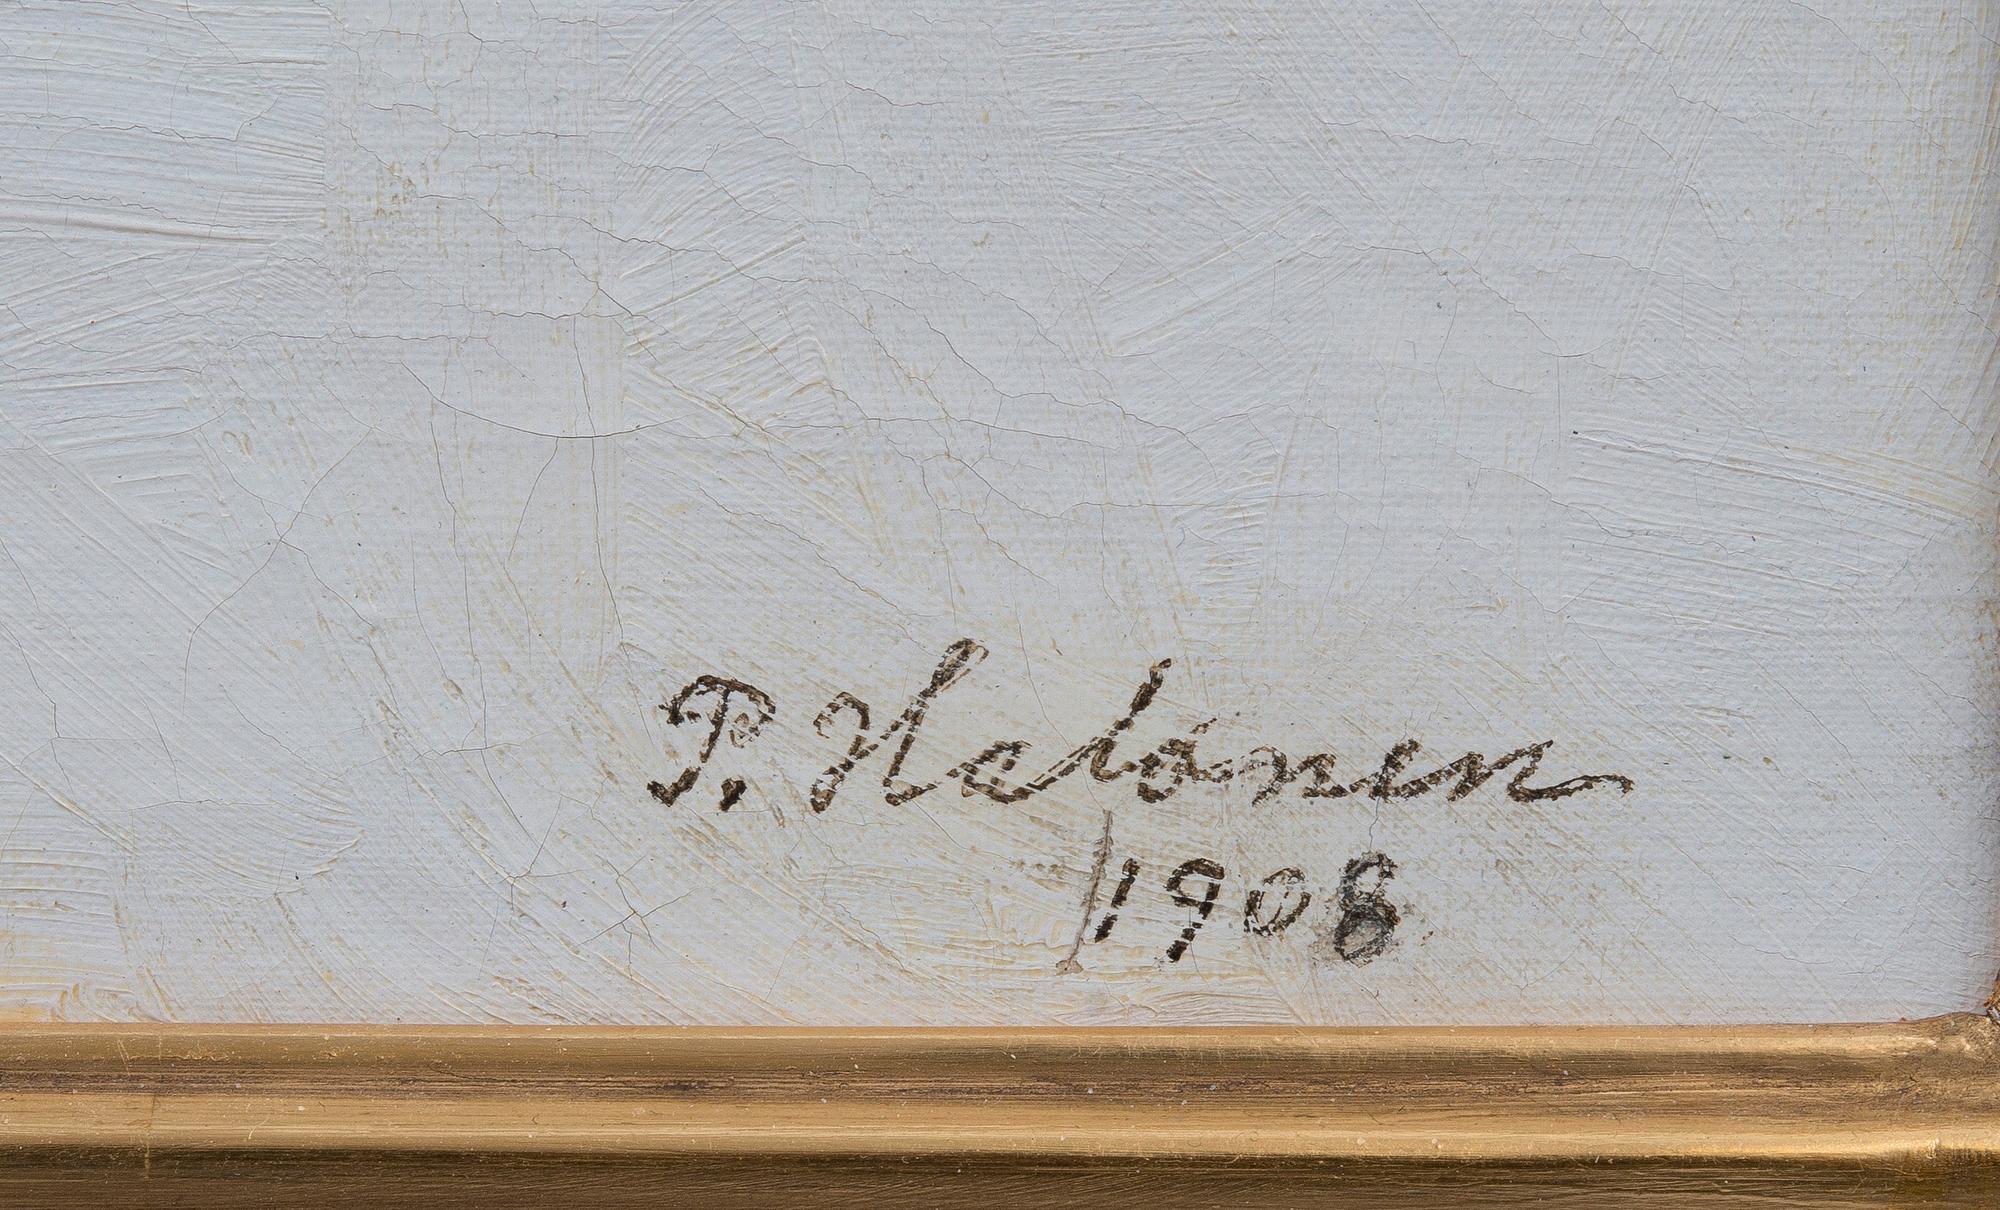 P. Halonen
1908